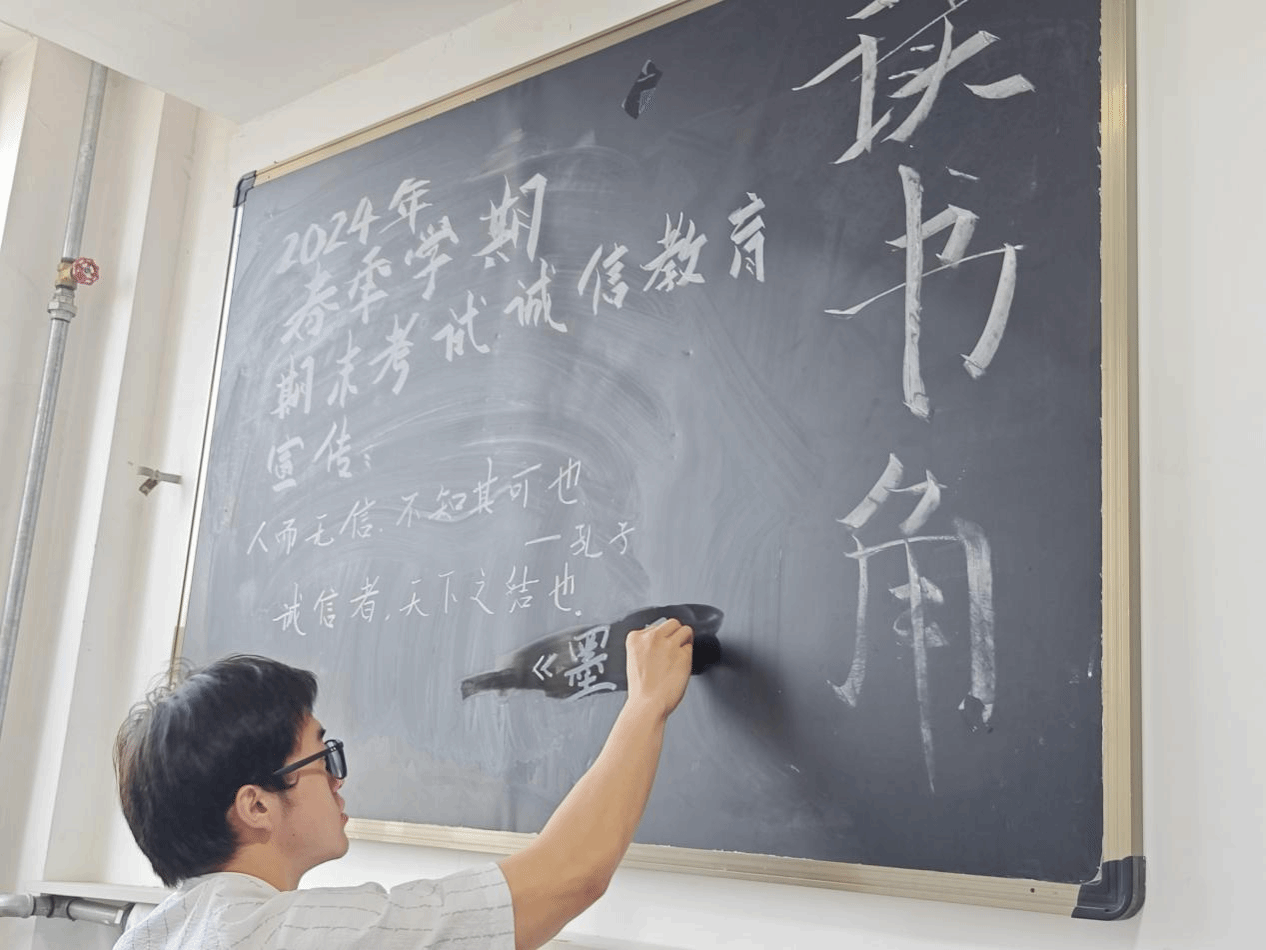 2024年
春季学期
期末考试诚信教育
宣传:
人而无信.不知其可也.
一孔子
诚信者,天下之结也.
《墨
读书角